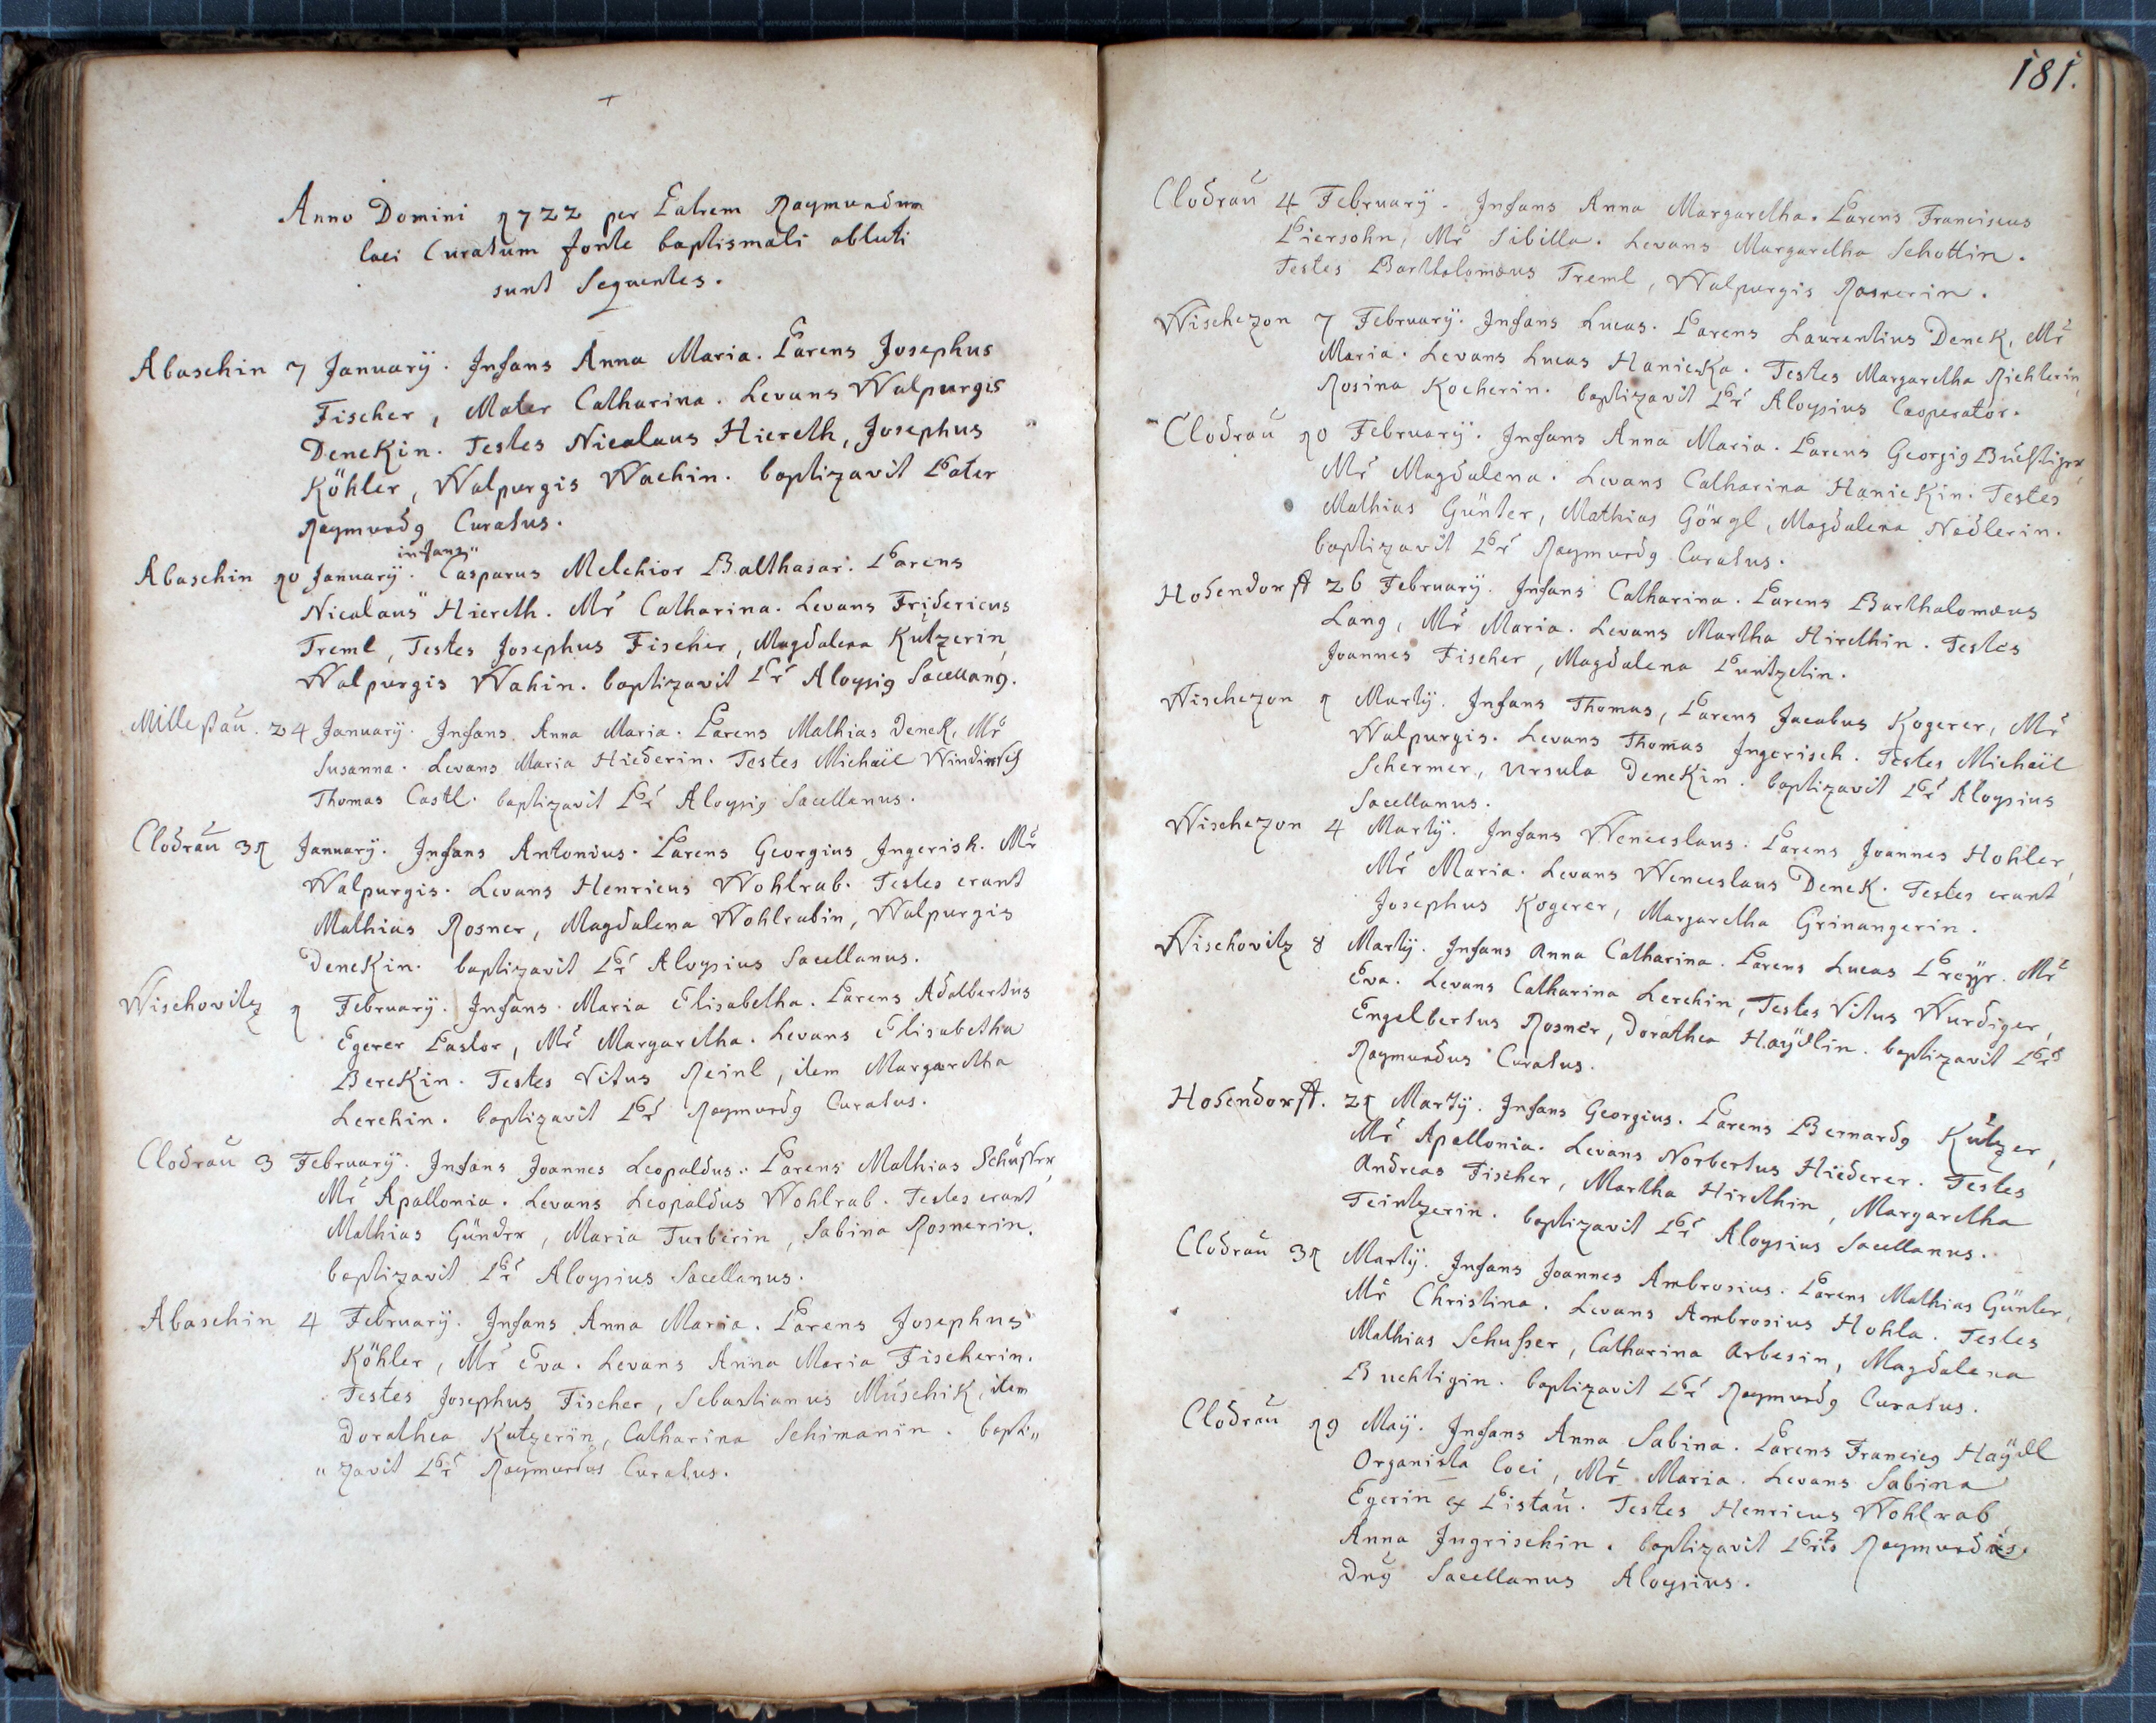 Anno Domini 1722 per Patrem Raymundum
loci Curatum fonte baptismali abluti
sunt Sequentes.
Abaschin 7 January. Infans Anna Maria. Parens Josephus
Fischer, Mater Catharina. Levans Walpurgis
Denekin. Testes Nicolaus Hiereth, Josephus
Köhler, Walpurgis Wachin. baptizavit Pater
Raymundg Curatus.
infans
Abaschin 10 January. Casparus Melchior Balthasar. Parens
Nicolaus Hiereth. Mr Catharina. Levans Fridericus
Treml, Testes Josephus Fischer, Magdalena Kutzerin,
Walpurgis Wahin. baptizavit Pr Aloysig Sacellang.
Milleßau. 24 January. Infans Anna Maria. Parens Mathias Denek, Mr
Susanna. Levans Maria Hiederin. Testes Michaël Windisch
Thomas Castl. baptizavit Pr Aloysig Sacellanus.
Clodrau 31 January. Infans Antonius. Parens Georgius Ingerish. Mr
Walpurgis. Levans Henricus Wohlrab. Testes erant
Mathias Rosner, Magdalena Wohlrabin, Walpurgis
Denekin. baptizavit Pr Aloysius Sacellanus.
Wischovitz 1 February. Infans Maria Elisabetha. Parens Adalbertus
Egerer Pastor, Mr Margaretha. Levans Elisabetha
Berekin. Testes Vitus Reinl, item Margaretha
Lerchin. baptizavit Pr Raymundg Curatus.
Clodrau 3 February. Infans Joannes Leopoldus. Parens Mathias Schuster,
Mr Apollonia. Levans Leopoldus Wohlrab. Testes erant
Mathias Günder, Maria Turberin, Sabina Rosnerin.
baptizavit Pr Aloysius Sacellanus.
Abaschin 4 February. Infans Anna Maria. Parens Josephus
Köhler, Mr Eva. Levans Anna Maria Fischerin.
Testes Josephus Fischer, Sebastianus Muschik, item
Dorathea Kutzerin, Catharina Schimanin. bapti„
„zavit Pr Raymundus Curatus.
181.
Clodrau 4 February. Infans Anna Margaretha. Parens Franciscus
Piersohn, Mr Sibilla. Levans Margaretha Schottin.
Testes Bartholomæus Treml, Walpurgis Rosnerin.
Wischezon 7 February. Infans Lucas. Parens Laurentius Denek, Mr
Maria. Levans Lucas Hanicka. Testes Margaretha Richlerin,
Rosina Kocherin. baptizavit Pr Aloysius Cooperator.
Clodrau 10 February. Infans Anna Maria. Parens Georgig Buchtiger,
Mr Magdalena. Levans Catharina Haniekin. Testes
Mathias Günter, Mathias Görgl, Magdalena Nadlerin.
baptizavit Pr Raymundg Curatus.
Hodendorff 26 February. Infans Catharina. Parens Bartholomæus
Lang, Mr Maria. Levans Martha Hirethin. Testes
Joannes Fischer, Magdalena Puntzelin.
Wischezon 1 Marty. Infans Thomas, Parens Jacobus Kogerer, Mr
Walpurgis. Levans Thomas Ingerisch. Testes Michaël
Schermer, Ursula Denekin. baptizavit Pr Aloysius
Sacellanus.
Wischezon 4 Marty. Infans Wenceslaus. Parens Joannes Hohler,
Mr Maria. Levans Wenceslaus Denek. Testes erant
Josephus Kogerer, Margaretha Grinangerin.
Wischovitz 8 Marty. Infans Anna Catharina. Parens Lucas Preÿr. Mr
Eva. Levans Catharina Lerchin, Testes Vitus Wurdiger,
Engelbertus Rosner, Dorathea Haÿdlin. baptizavit Pr
Raymundus Curatus.
Hodendorff. 21 Marty. Infans Georgius. Parens Bernardg Kutzer,
Mr Apollonia. Levans Norbertus Hiederer. Testes
Andreas Fischer, Martha Hirethin, Margaretha
Teintzerin. baptizavit Pr Aloysius Sacellanus.
Clodrau 31 Marty. Infans Joannes Ambrosius. Parens Mathias Günter,
Mr Christina. Levans Ambrosius Hohla. Testes
Mathias Schusser, Catharina Arbesin, Magdalena
Buchtigin. baptizavit Pr Raymundg Curatus.
Clodrau 19 May. Infans Anna Sabina. Parens Francisg Haÿdl
Organista loci, Mr Maria. Levans Sabina
Egerin ex Pistau. Testes Henricus Wohlrab,
Anna Ingrischin. baptizavit Raymundus
Dng Sacellanus Aloysius.